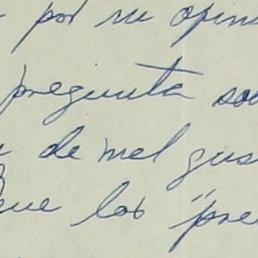 por su opin
pregunta so
de mel gus
que los "pre